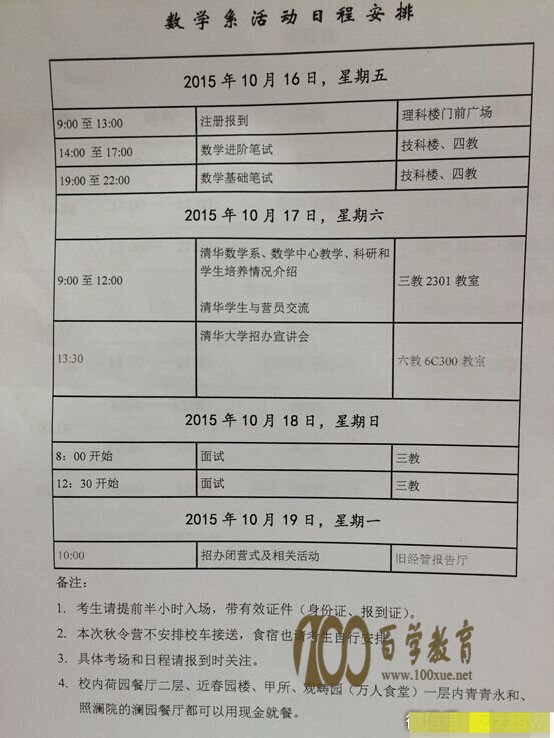 数学系活动日程安排
2015年10月16日，星期五
9:00 至 13:00 注册报到 理科楼门前广场
14:00 至 17:00 数学进阶笔试 技科楼、四教
19:00 至 22:00 数学基础笔试 技科楼、四教
2015年10月17日，星期六
9:00 至 12:00 清华数学系、数学中心教学、科研和
学生培养情况介绍
清华学生与营员交流 三教 2301 教室
13:30 清华大学招办宣讲会 六教 6C300 教室
2015年10月18日，星期日
8：00 开始 面试 三教
12：30 开始 面试 三教
2015年10月19日，星期一
10:00 招办闭营式及相关活动 旧经管报告厅
备注：
1. 考生请提前半小时入场，带有效证件（身份证、报到证）。
2. 本次秋令营不安排校车接送，食宿也请考生自行安排。
3. 具体考场和日程请报到时关注。
4. 校内荷园餐厅二层、近春园楼、甲所、观畴园（万人食堂）一层内青青永和、
照澜院的澜园餐厅都可以用现金就餐。
100 百学教育
www.100xue.net